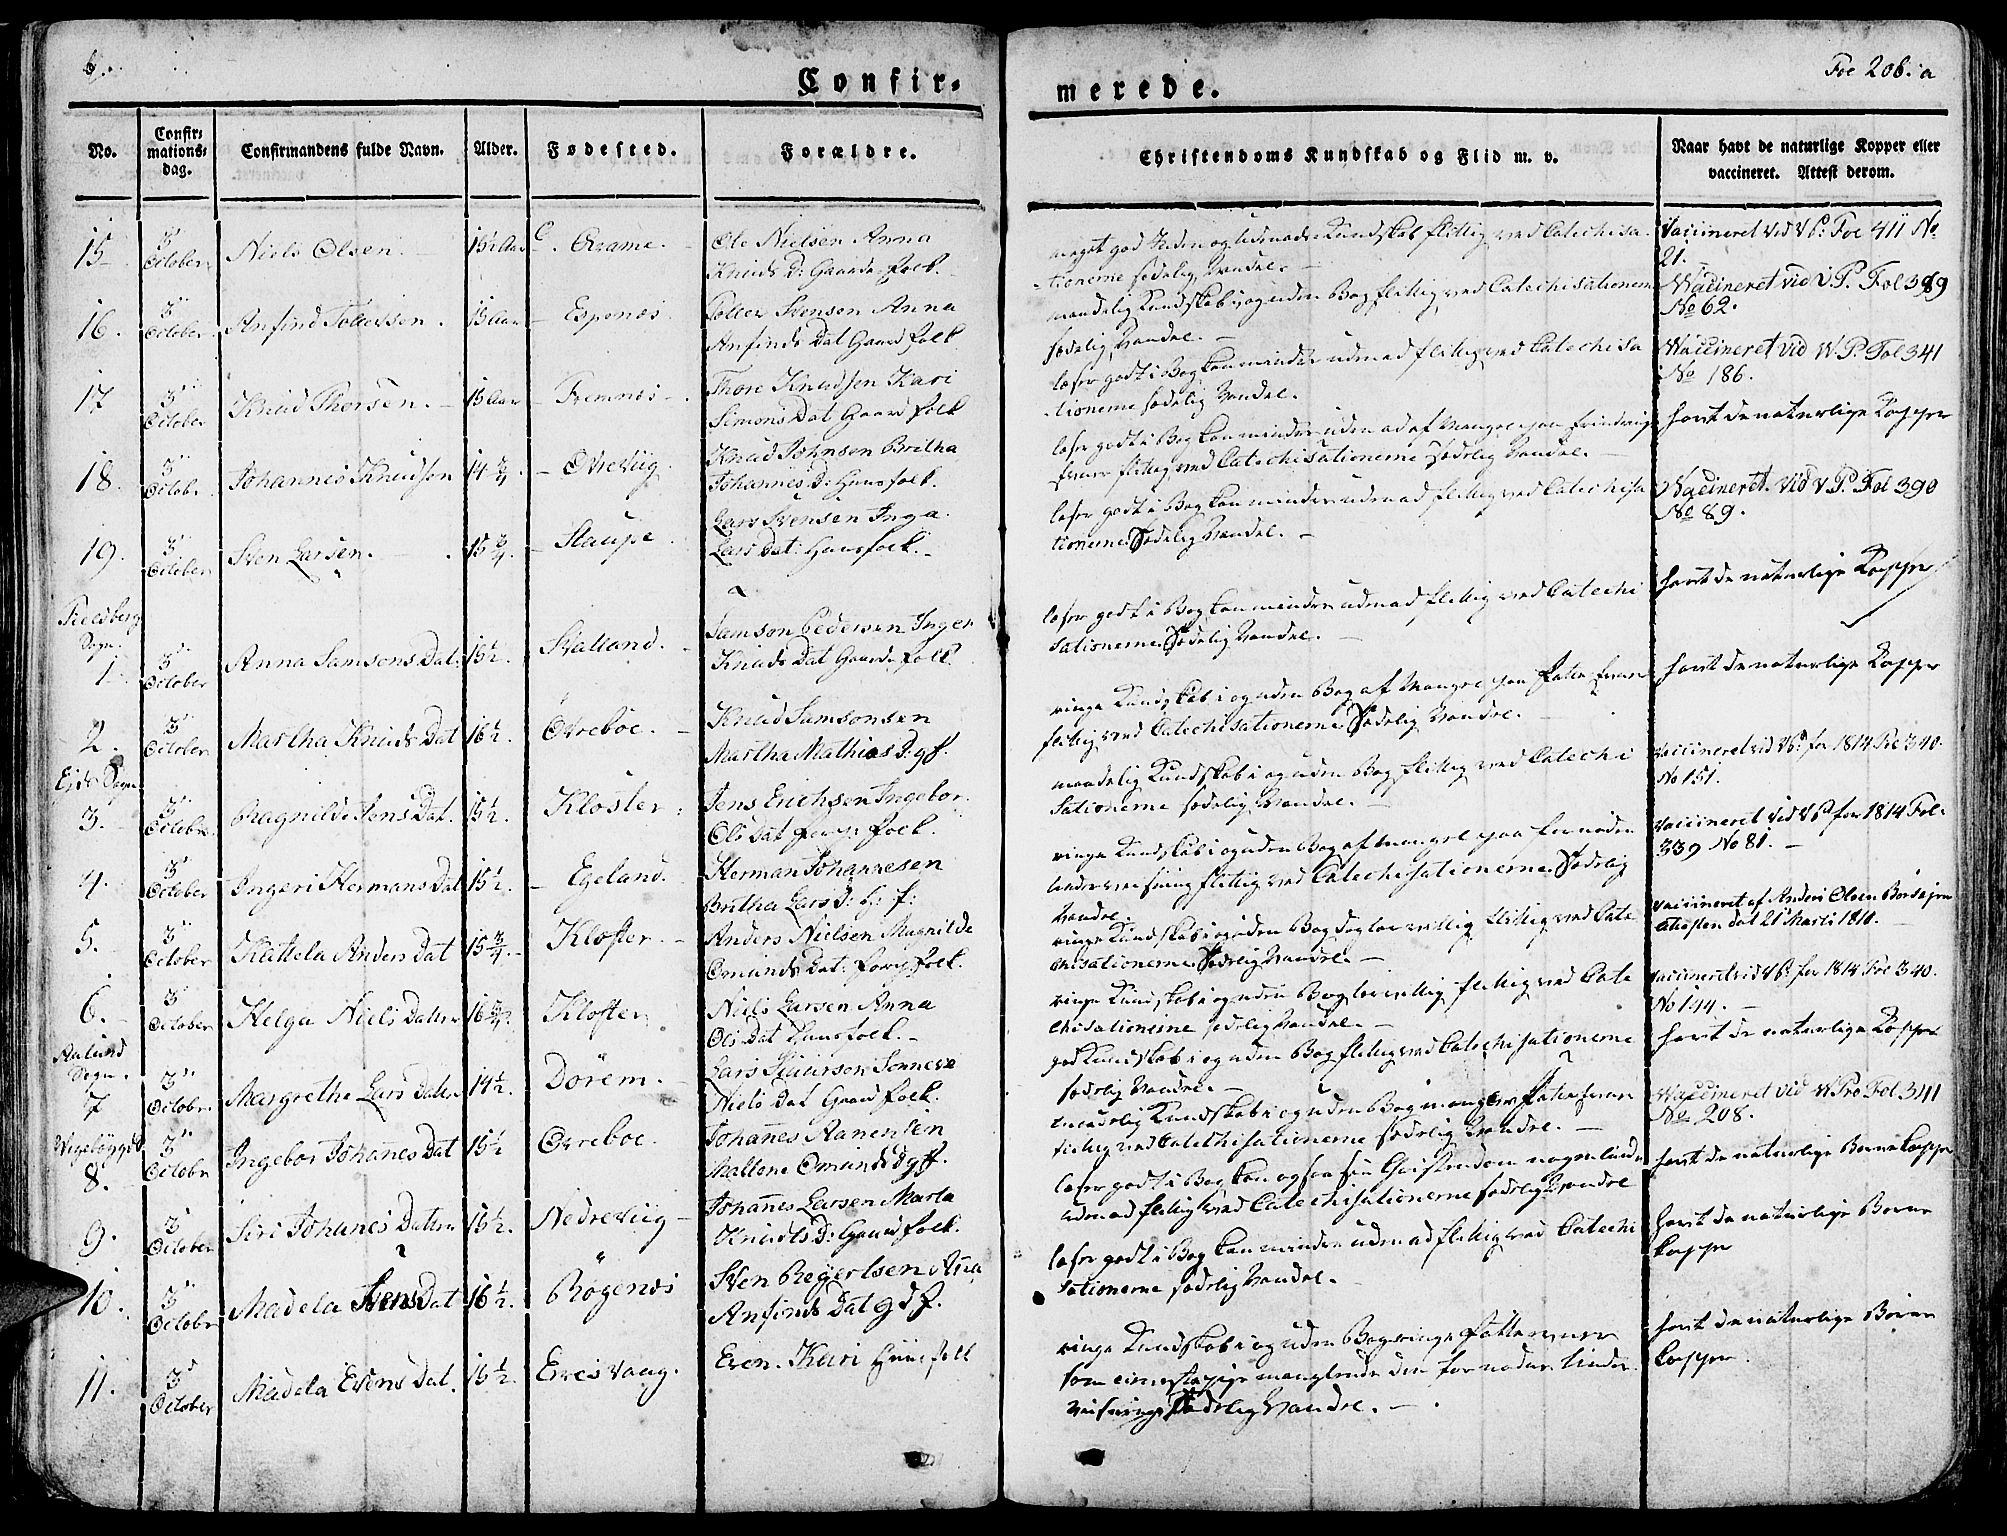 6.
Confir-
merede.
Foe 206. a
No.
Confir-
mations-
dag.
Confirmandens fulde Navn.
Alder.
Fødested.
Forældre.
Christendoms Kundskab og Flid m. v.
Naar havt de naturlige Kopper eller
vaccineret. Attest derom.
15
3'
October
Niels Olsen.
15½ Aar
Ole Nielsen Anna
Knuds D: Gaardsfolk.
meget god Inden og Udenads Kundskab flittig ved Catechisa-
tionerne sædelig Vandel.
Vaccineret vid V P: Foe 411 No
21.
16.
3''
October
Anfind Tollersen.
15 Aar
Espenes.
Toller Svensen Anna
Anfinds Dat Gaardfolk
maadelig Kundskab i og uden Bog flittig ved Catechisationerne
sædelig Vandel.
Vaccineret vid V. P. Fol 389
No 62.
17
3''
October
Knud Thorsen.
15 Aar
Fremnes
Thore Knudsen Kari
Simons Dat Gaardfolk
læser godt i Bog kan mindre udenad flittig ved Catechisa
tionerne sædelig Vandel.
Vaccineret vid V. P. Fol 341
No 186.
18.
3''
Octobr
Johannes Knudsen
14 ¾
Ovreviig.
Knud Johnsen Britha
Johannes D: Huusfolk.
læser godt i Bog kan mindre uden ad af Mangel paa
flittig ved Catechisationerne sædelig Vandel.
havt de naturlige Kopper
19.
3''
October
Sven Larsen.
15 ¾
Staupe
Lars Svensen Inga
Lars Dat: Huusfolk.
læser godt i Bog kan mindre udenad flittig ved Catechisa
tionerne Sædelig Vandel.
Vaccineret vid V P. Fol 390
No 89.
Fieldberg
Sogn.
1
3''
October
Anna Samsons Dat.
15½.
Svalland.
Samson Pedersen Inger
Knuds Dat Gaardsfolk
læser godt i Bog kan mindre udenad flittig ved Catechi
sationerne Sædelig Vandel.
havt de naturlige Kopper
2.
3''
October
Martha Knuds Dat
16½.
Ovreboe.
Knud Samsonsen
Martha Mathias D: gf.
ringe Kundskab i og uden Bog af Mangel paa
flittig ved Catechisationerne Sædelig Vandel.
havt de naturlige Kopper
Eids Sogn
3.
3''
Octobr.
Ragnilde Jens Dat.
15½.
Kloster.
Jens Erichsen Ingebor
Ols Dat folk.
maadelig Kundskab i og uden Bog flittig ved Catechi
sationerne sædelig Vandel.
Vaccineret vid V P. for 1814 Foe 340.
No 151.
4.
3'
October
Ingeri Hermans Dat
15½.
Egeland.
Herman Johannesen
Britha Lars D: h: f:
ringe Kundskab i og uden Bog af Mangel paa fornøden
Underviisning flittig ved Catechisationerne Sædelig
Vandel.
Vaccineret vid V P for 1814 Fol.
339 No 81.
5.
3''
October
Kattela Anders Dat
15 ¾.
Kloster.
Anders Nielsen Magnilde
Omunds Dat: folk.
ringe Kundskab i og uden Bog dog flittig ved Cate
chisationerne Sædelig Vandel.
Vaccineret af Anders Olsen
attesten dat 21 Marti 1810.
6.
3'
October
Helga Niels Datter
16 ¾
Kloster
Niels Larsen Anna
Ols Dat Huusfolk.
ringe Kundskab i og uden Bog flittig ved Cate
chisationerne sædelig Vandel.
Vaccineret vid V P. for 1814 Foe 340.
No 144.
Aalund
Sogn.
7
3''
Octobr.
Margrethe Lars Datter
14½.
Dörem.
Niels Dat Gaardfolk.
god Kundskab i og uden Bog flittig ved Catechisationerne
sædelig Vandel.
havt de naturlige Kopper
8.
3''
Octobr
Ingebor Johanes Dat
15½
Ovreboe.
Johanes Aanensen
Mallene Omunds D g f.
maadelig Kundskab i og uden Bog
flittig ved Catechisationerne sædelig Vandel.
Vaccineret vid V Pro Fol 341
No 208.
9.
3'
October
Siri Johanes Datter
16½.
Nedreviig
Johanes Larsen Marta
Knudts D: Gaardfolk.
læser godt i Bog kan ogsaa sin Christendom nogenlunde
udenad flittig ved Catechisationerne sædelig Vandel
havt de naturlige Børnekopper
10.
3''
October
Madela Svens Dat
16½.
Rögenes
Sven Regertsen Anna
Anfinds Dat g d f.
læser godt i Bog kan mindre udenad flittig ved Catechi
sationerne sædelig Vandel.
havt de naturlige Børne
kopper
11.
3
October
Madela Evens Dat.
16½.
Eresvaag.
Even. Kari Huusfolk
ringe Kundskab i og uden Bog ringe
som manglende den fornødne Under
viisning Sædelig Vandel.
havt de naturlige Børne
kopper.